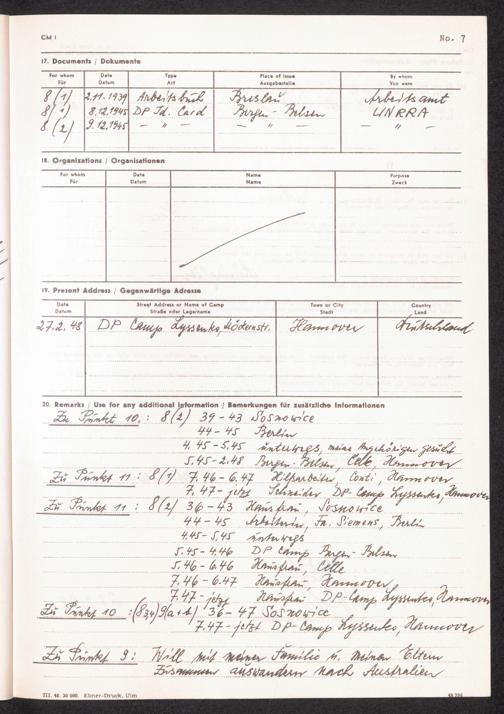 CM 1 No. 7
17. Documents / Dokumente
For whom Für Date Datum Type Art Place of Issue Ausgabestelle By whom Von wem
8 (1) 2.11.1939 Arbeitsbuch Breslau Arbeitsamt
8 (1) 8.12.1945 DP Id. Card Bergen-Belsen UNRRA
8 (2) 9.12.1945 - " - - " - - " -
18. Organizations / Organisationen
For whom Für Date Datum Name Name Purpose Zweck
19. Present Address / Gegenwärtige Adresse
Date Datum Street Address or Name of Camp Straße oder Lagername Town or City Stadt Country Land
27.2.48 DP Camp Lyssenko, Hannover Deutschland
20. Remarks / Use for any additional information / Bemerkungen für zusätzliche Informationen
Zu Punkt 10.: 8(2) 39-43 Sosnowice
44-45 Berlin
4.45-5.45 unterwegs, meine Angehörigen gesucht
5.45-2.48 Bergen-Belsen, Celle, Hannover
Zu Punkt 11: 8(1) 7.46-6.47 Hilfsarbeiter, Conti, Hannover
7.47-jetzt Schneider, DP-Camp Lyssenko, Hannover
Zu Punkt 11: 8(2) 36-43 Hausfrau, Sosnowice
44-45 Arbeiterin, Fa. Siemens, Berlin
4.45-5.45 unterwegs
5.45-4.46 DP Camp Bergen-Belsen
5.46-6.46 Hausfrau, Celle
7.46-6.47 Hausfrau, Hannover
7.47-jetzt Hausfrau DP-Camp Lyssenko, Hannover
Zu Punkt 10: 9(a+b) 36-47 Sosnowice
7.47-jetzt DP-Camp Lyssenko, Hannover
Zu Punkt 9: Will mit meiner Familie u. meinen Eltern
auswandern nach Australien
III. 48. 30 000. Ebner-Druck, Ulm